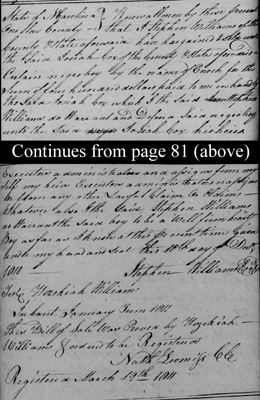 State of N Carolina } Know all men by these presents
Onslow County } That I Stephen Williams of the
County & State aforesaid have bargained & Sold unto
the Said Josiah Cox of the County & State aforesaid a
Certain negro boy by the name of Enoch for the
Sum of four hundred dollars paid to me in hand by
the Said Cox which I the Said Stephen
Williams do Warrant and Defend Said negro boy
unto the Said negro Josiah Cox his heirs
Continues from page 81 (above)
Executors administrators and assigns from my
Self my heirs Executors administrators or assigns
or from any other Lawful Claim or
Whatever also I the Said Stephen Williams
Warrants the Said boy to be a Well Sound
By as far as I know at this present time Given
under my hand and Seal this 10th day of Decr
1810 Stephen Williams
Test Hezekiah Williams
In Court January Term 1811
This Bill of Sale was Proved by Hezekiah
Williams & ordered to be Registered
Nath Loomis CC
Registered March 19th 1811